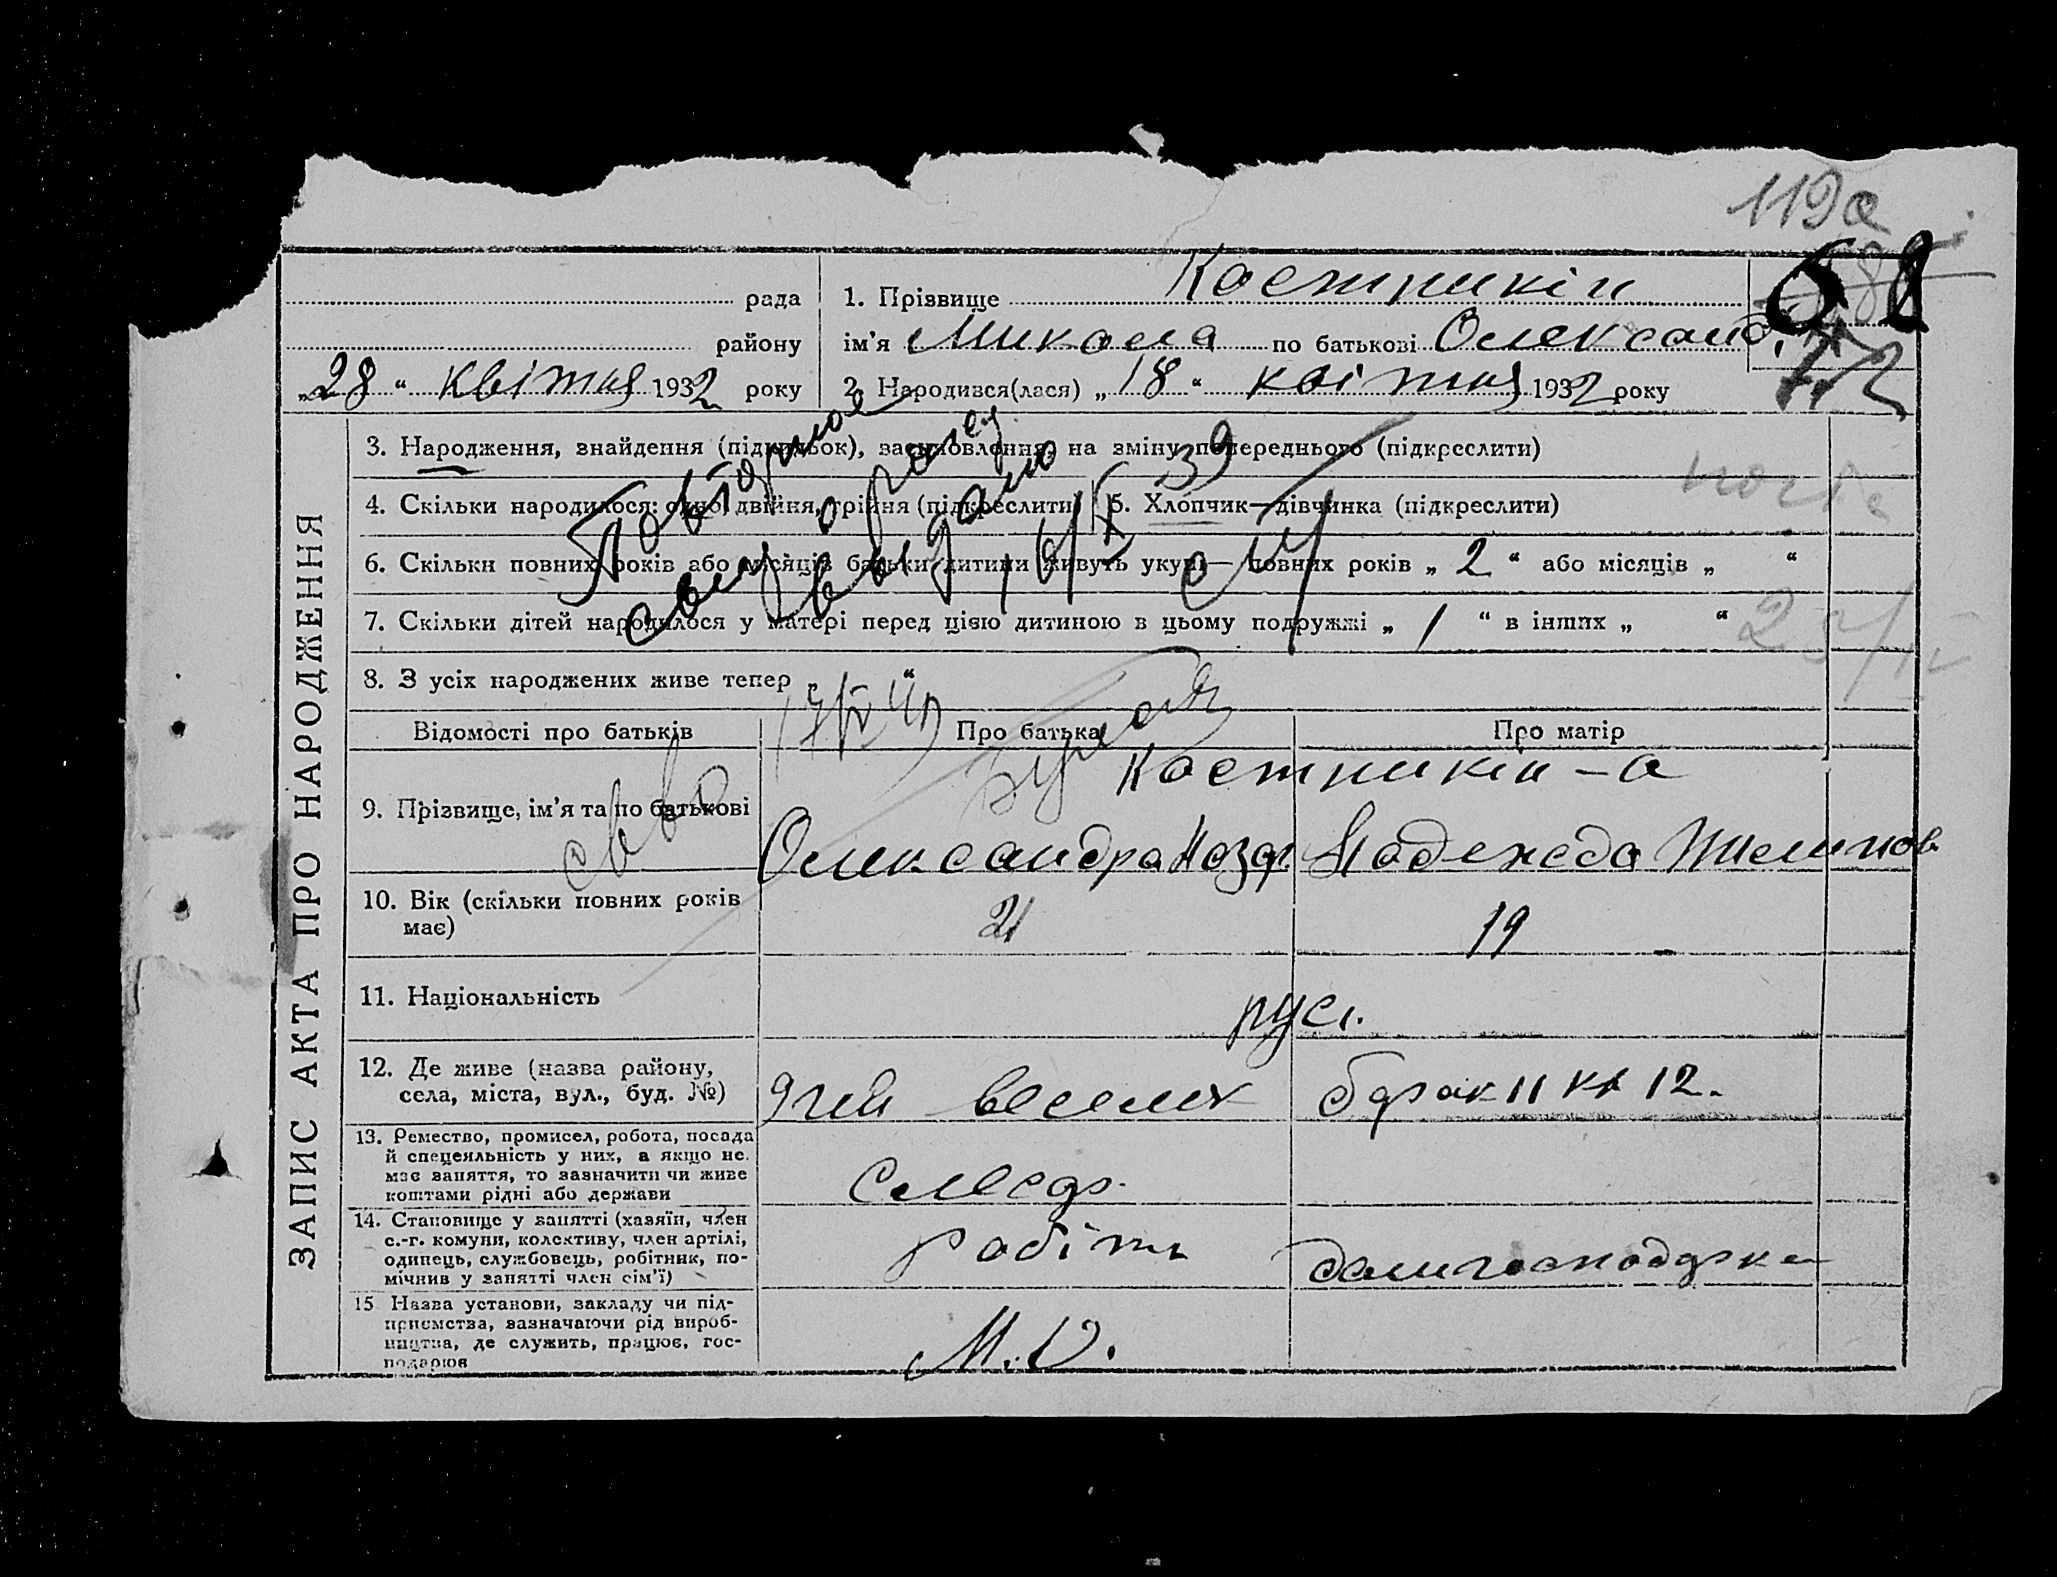 119а
рада
1. Прізвище Кострикін
району
ім'я Микола по батькові Олександ.
„28“ квітня 1932 року
2. Народився(лася) „18“ квітня 1932 року
3. Народження, знайдення (підкидьок), засиновлення, на зміну попереднього (підкреслити)
4. Скільки народилося: одно, двійня, трійня (підкреслити)
5. Хлопчик—дівчинка (підкреслити)
6. Скільки повних років або місяців батьки дитини живуть укупі— повних років „2“ або місяців „ “
7. Скільки дітей народилося у матері перед цією дитиною в цьому подружжі „1“ в інших „ “
8. З усіх народжених живе тепер „ “
Повторное
свид. о рожд.
выдано
Відомості про батьків
Про батька
Про матір
Кострикін - а
9. Прізвище, ім'я та по батькові
Олександра Надежда
10. Вік (скільки повних років має)
21
19
11. Національність
рус.
12. Де живе (назва району,
села, міста, вул., буд. №)
барак 11 кв 12.
13. Ремество, промисел, робота, посада
й спеціяльність у них, а якщо не
має заняття, то зазначити чи живе
коштами рідні або держави
Слесар.
14. Становище у занятті (хазяїн, член
с.-г. комуни, колективу, член артілі,
одинець, службовець, робітник, по-
мічнив у занятті член сім'ї)
робітн
домогосподарка
15. Назва установи, закладу чи під-
приємства, зазначаючи рід вироб-
ництва, де служить, працює, гос-
подарює
ЗАПИС АКТА ПРО НАРОДЖЕННЯ